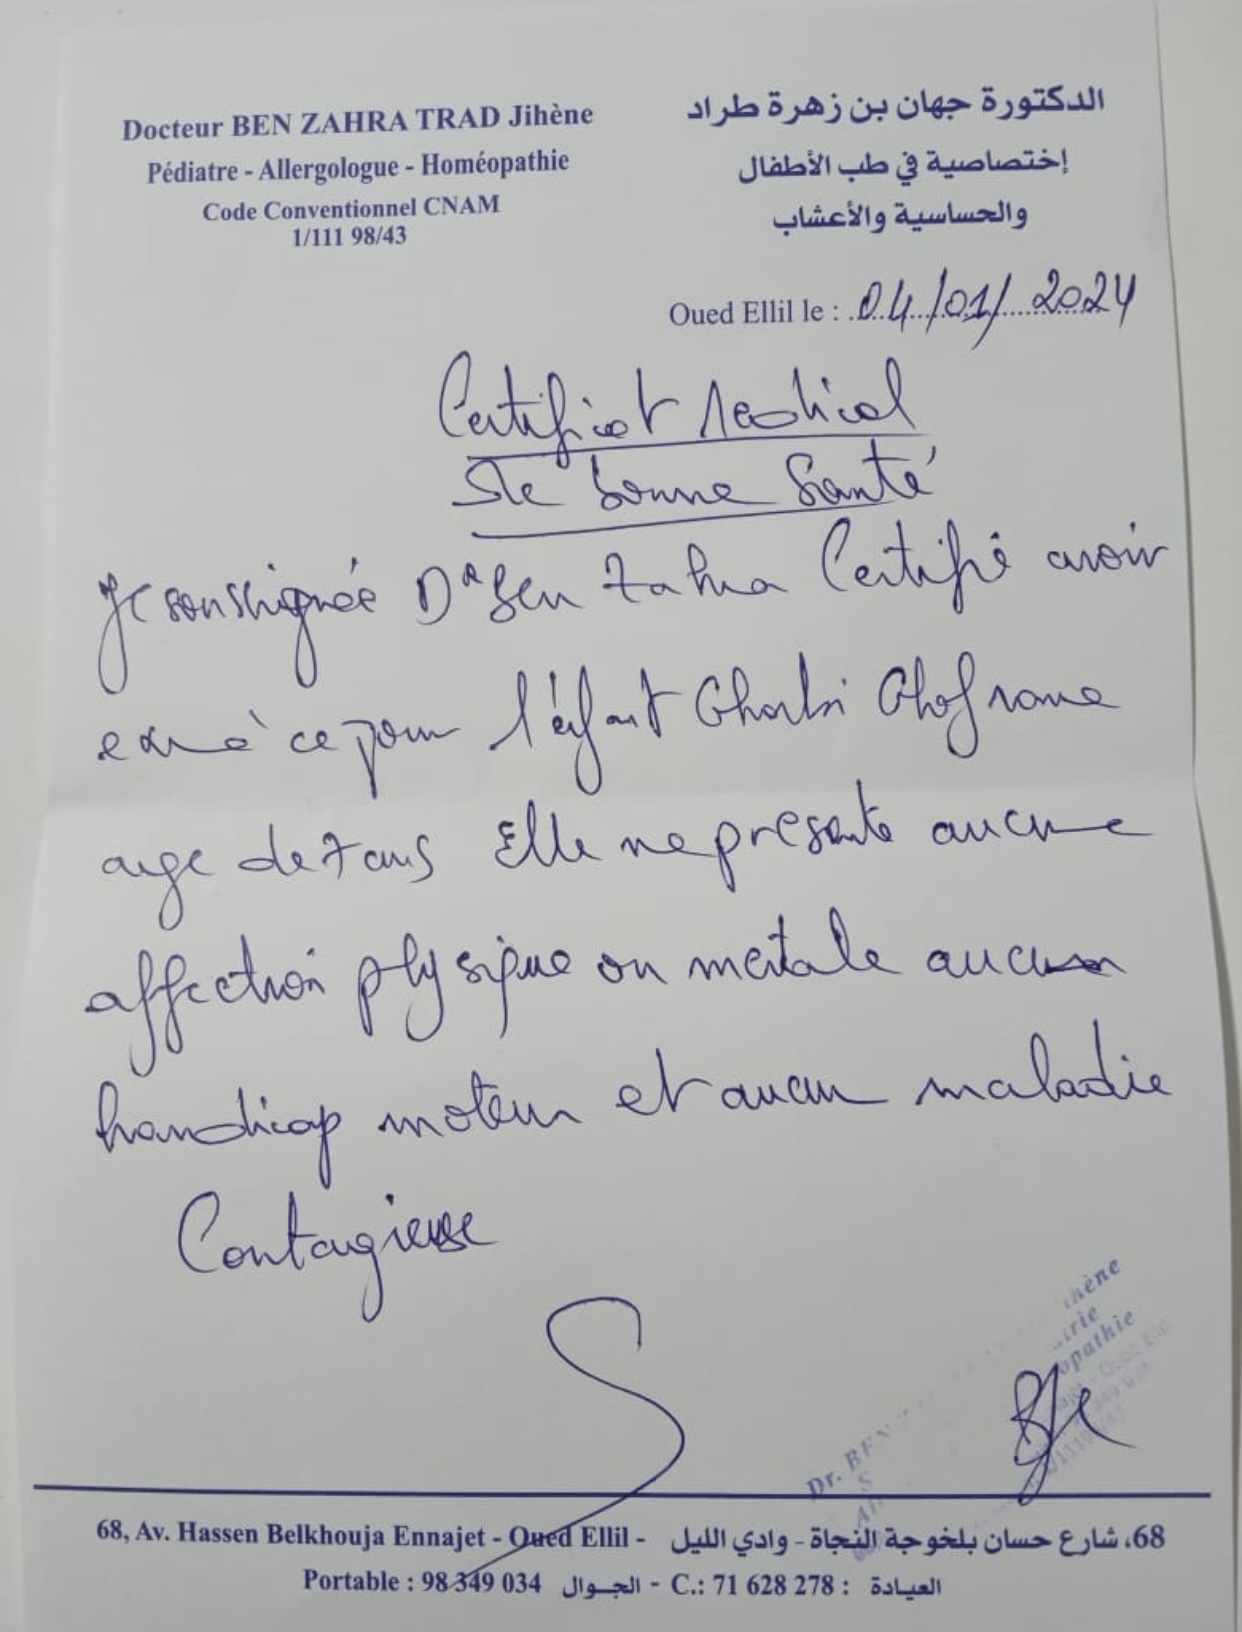 Docteur BEN ZAHRA TRAD Jihène
Pédiatre - Allergologue - Homéopathie
Code Conventionnel CNAM
1/111 98/43
الدكتورة جهان بن زهرة طراد
إختصاصية في طب الأطفال
والحساسية والأعشاب
Oued Ellil le : 04/01/2024
Certificat Medical
de bonne Santé
Je sousignée Dr Ben Zahra Certifie avoir
ce jour l'enfant Gharbi Ghofrane
age de 7 ans Elle ne présente aucune
affection physique ou mentale aucun
handicap moteur et aucun maladie
Contagieuse
Dr. BEN
hène
opathie
68, Av. Hassen Belkhouja Ennajet - Oued Ellil - 68، شارع حسان بلخوجة النجاة - وادي الليل
Portable : 98 349 034 الجـوال - C.: 71 628 278 : العيـادة